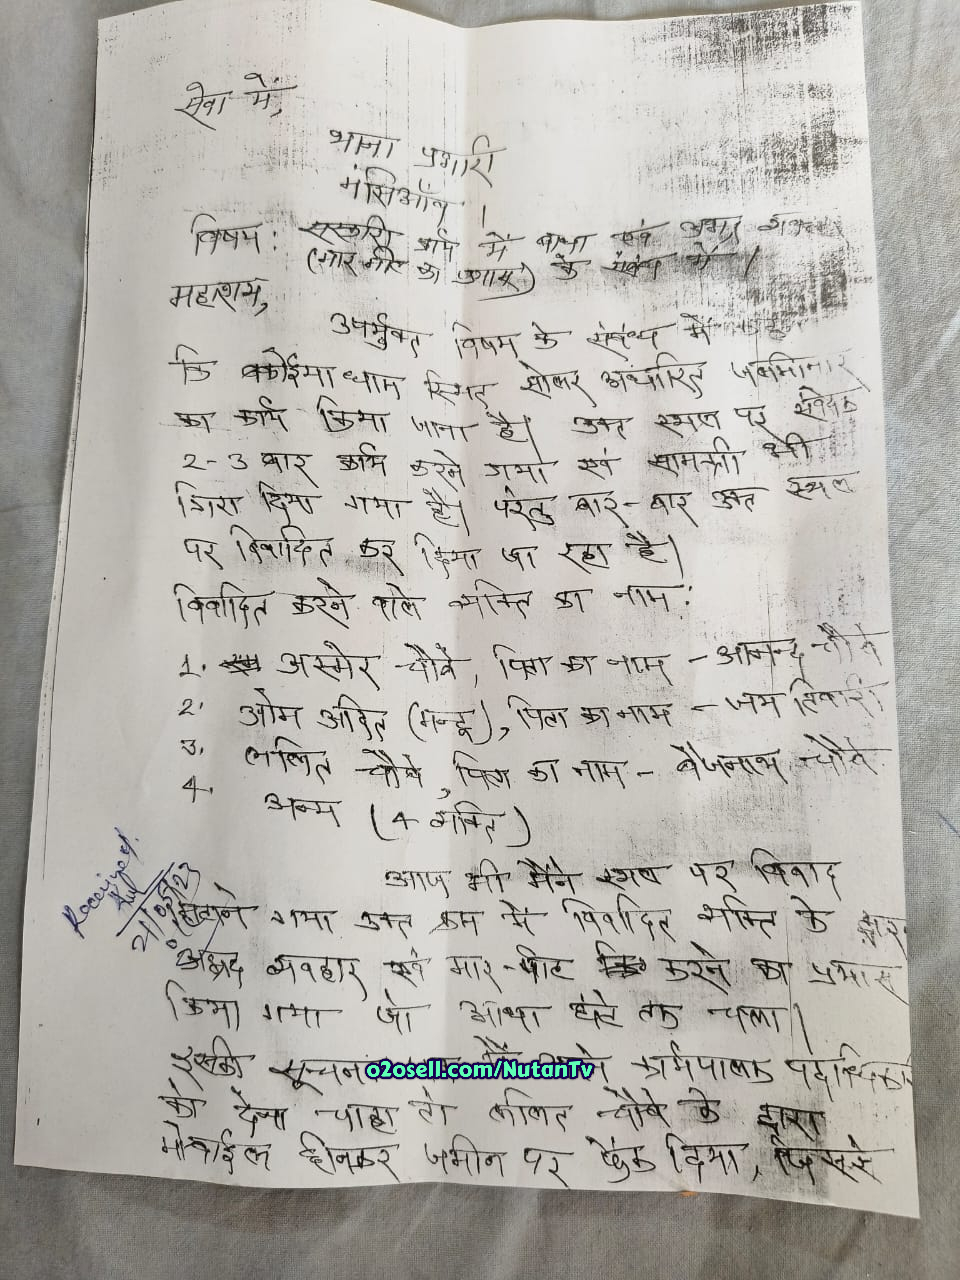 सेवा में,
थाना प्रभारी
मंझिआँव ।
विषय: सरकारी कार्य में बाधा एवं
(मार पीट का प्रयास) के संबंध में ।
महाशय,
उपर्युक्त विषय के संबंध में
कि कोईमा धाम स्थित सोलर अधारित जलमिनार
का कार्य किया जाना है। उक्त स्थल पर संवेदक
2-3 बार कार्य करने गया एवं सामग्री भी
गिरा दिया गया है। परंतु बार-बार उक्त स्थल
पर विवादित कर दिया जा रहा है।
विवादित करने वाले व्यक्ति का नाम:
1. चौबे, पिता का नाम - आनन्द चौबे
2. ओम अदित (मन्टू), पिता का नाम - जय तिवारी
3. ललित चौबे, पिता का नाम - बैजनाथ चौबे
4. अन्य (4 व्यक्ति)
आज भी मैंने स्थल पर विवाद
Received
21/05/23
गया उक्त क्रम में विवादित व्यक्ति के द्वारा
अभद्र व्यवहार एवं मार-पीट करने का प्रयास
किया गया जो आधा घंटे तक चला।
इसकी सूचना कार्यपालक पदाधिकारी
o2osell.com/NutanTv
को देना चाहा तो ललित चौबे के द्वारा
मोबाईल छीनकर जमीन पर फेंक दिया, जिससे